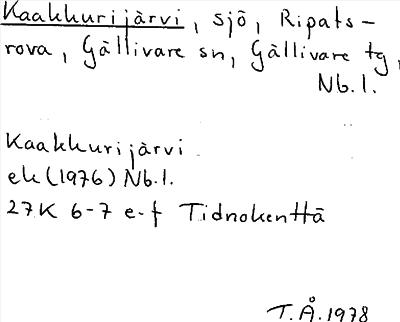 Kaakkurijärvi, sjö, Ripats-
rova, Gällivare sn, Gällivare tg,
Nb.l.
Kaakkurijärvi
ek (1976) Nb.l.
27K 6-7 e-f Tidnokenttä
T.Å. 1978